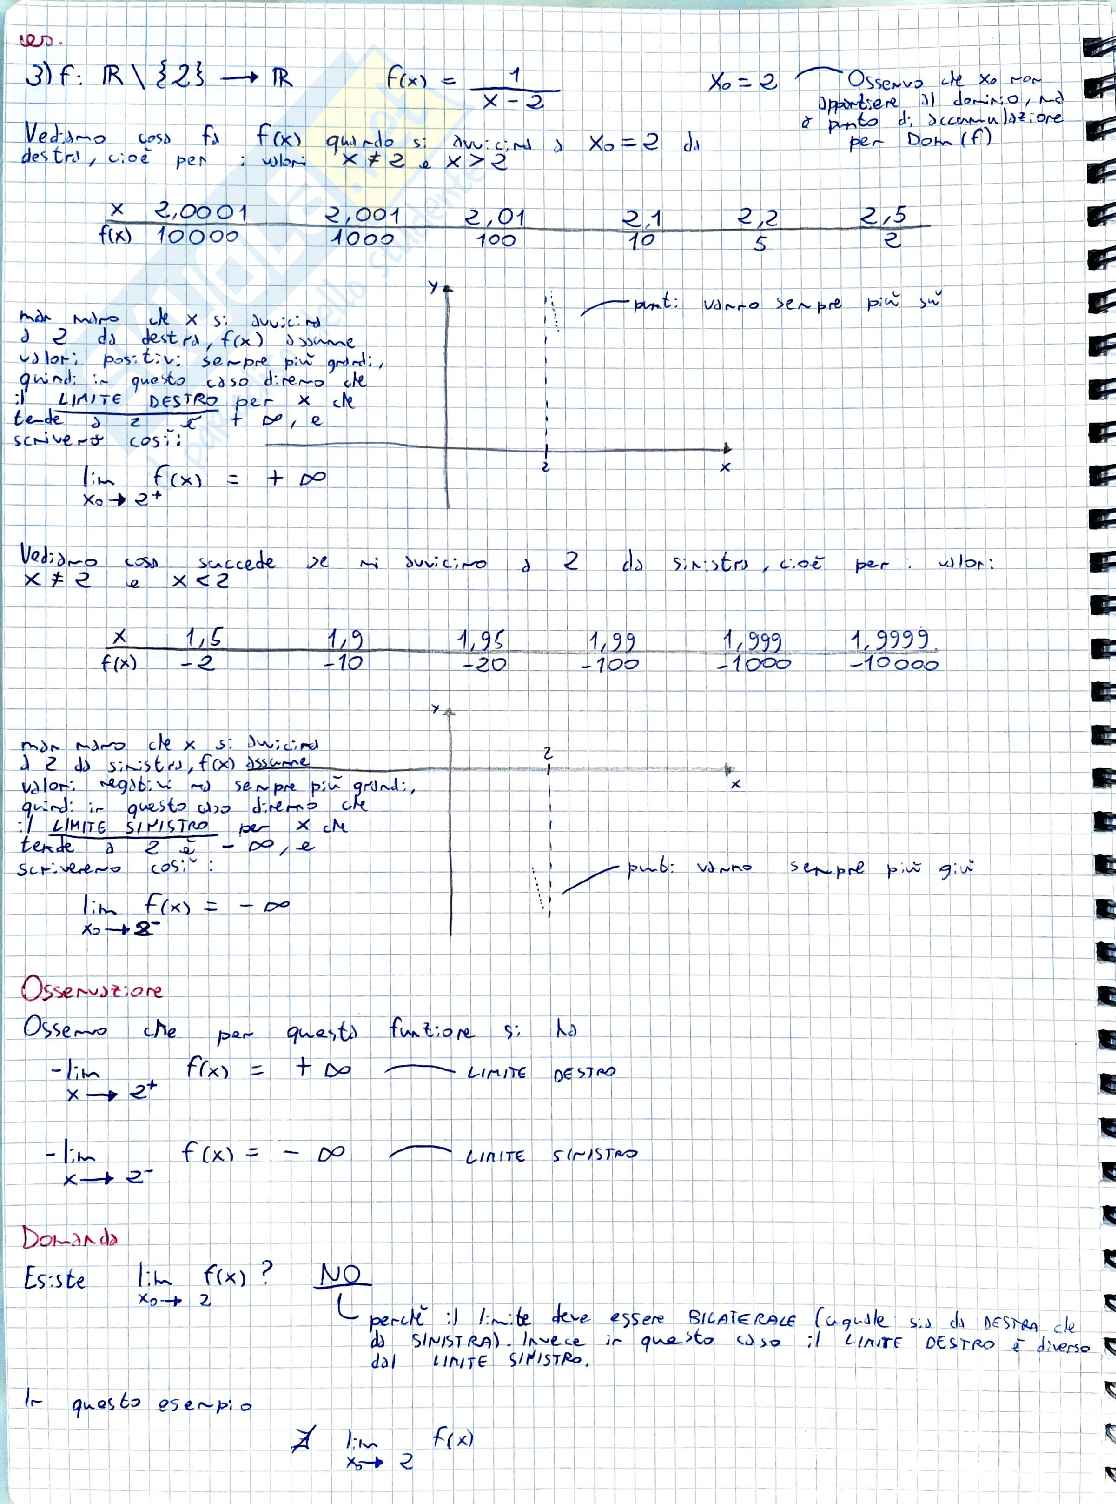 es.
3) f: ℝ \ {2} → ℝ f(x) = 1 / (x - 2) x₀ = 2 Osservo che x₀ non
appartiene al dominio, ma
è punto di accumulazione
per Dom(f)
Vediamo cosa fa f(x) quando si avvicina a x₀ = 2 da
destra, cioè per i valori x ≠ 2 e x > 2
x 2,0001 2,001 2,01 2,1 2,2 2,5
f(x) 10000 1000 100 10 5 2
y
punti vanno sempre più sù
man mano che x si avvicina
a 2 da destra, f(x) assume
valori positivi sempre più grandi,
quindi in questo caso diremo che
il LIMITE DESTRO per x che
tende a 2 è + ∞, e
scriverò così:
2 x
lim f(x) = + ∞
x₀ → 2⁺
Vediamo cosa succede se mi avvicino a 2 da sinistra, cioè per i valori
x ≠ 2 e x < 2
x 1,5 1,9 1,95 1,99 1,999 1,9999
f(x) -2 -10 -20 -100 -1000 -10000
y
2
x
man mano che x si avicina
a 2 da sinistra, f(x) assume
valori negativi ma sempre più grandi,
quindi in questo caso diremo che
il LIMITE SINISTRO per x che
tende a 2 è - ∞, e
scriveremo così:
punti vanno sempre più giù
lim f(x) = - ∞
x₀ → 2⁻
Osservazione
Osservo che per questa funzione si ha
- lim f(x) = + ∞ LIMITE DESTRO
x → 2⁺
- lim f(x) = - ∞ LIMITE SINISTRO
x → 2⁻
Domanda
Esiste lim f(x) ? NO
x₀ → 2
perchè il limite deve essere BILATERALE (uguale sia da DESTRA che
da SINISTRA). Invece in questo caso il LIMITE DESTRO è diverso
dal LIMITE SINISTRO.
In questo esempio
∄ lim f(x)
x₀ → 2